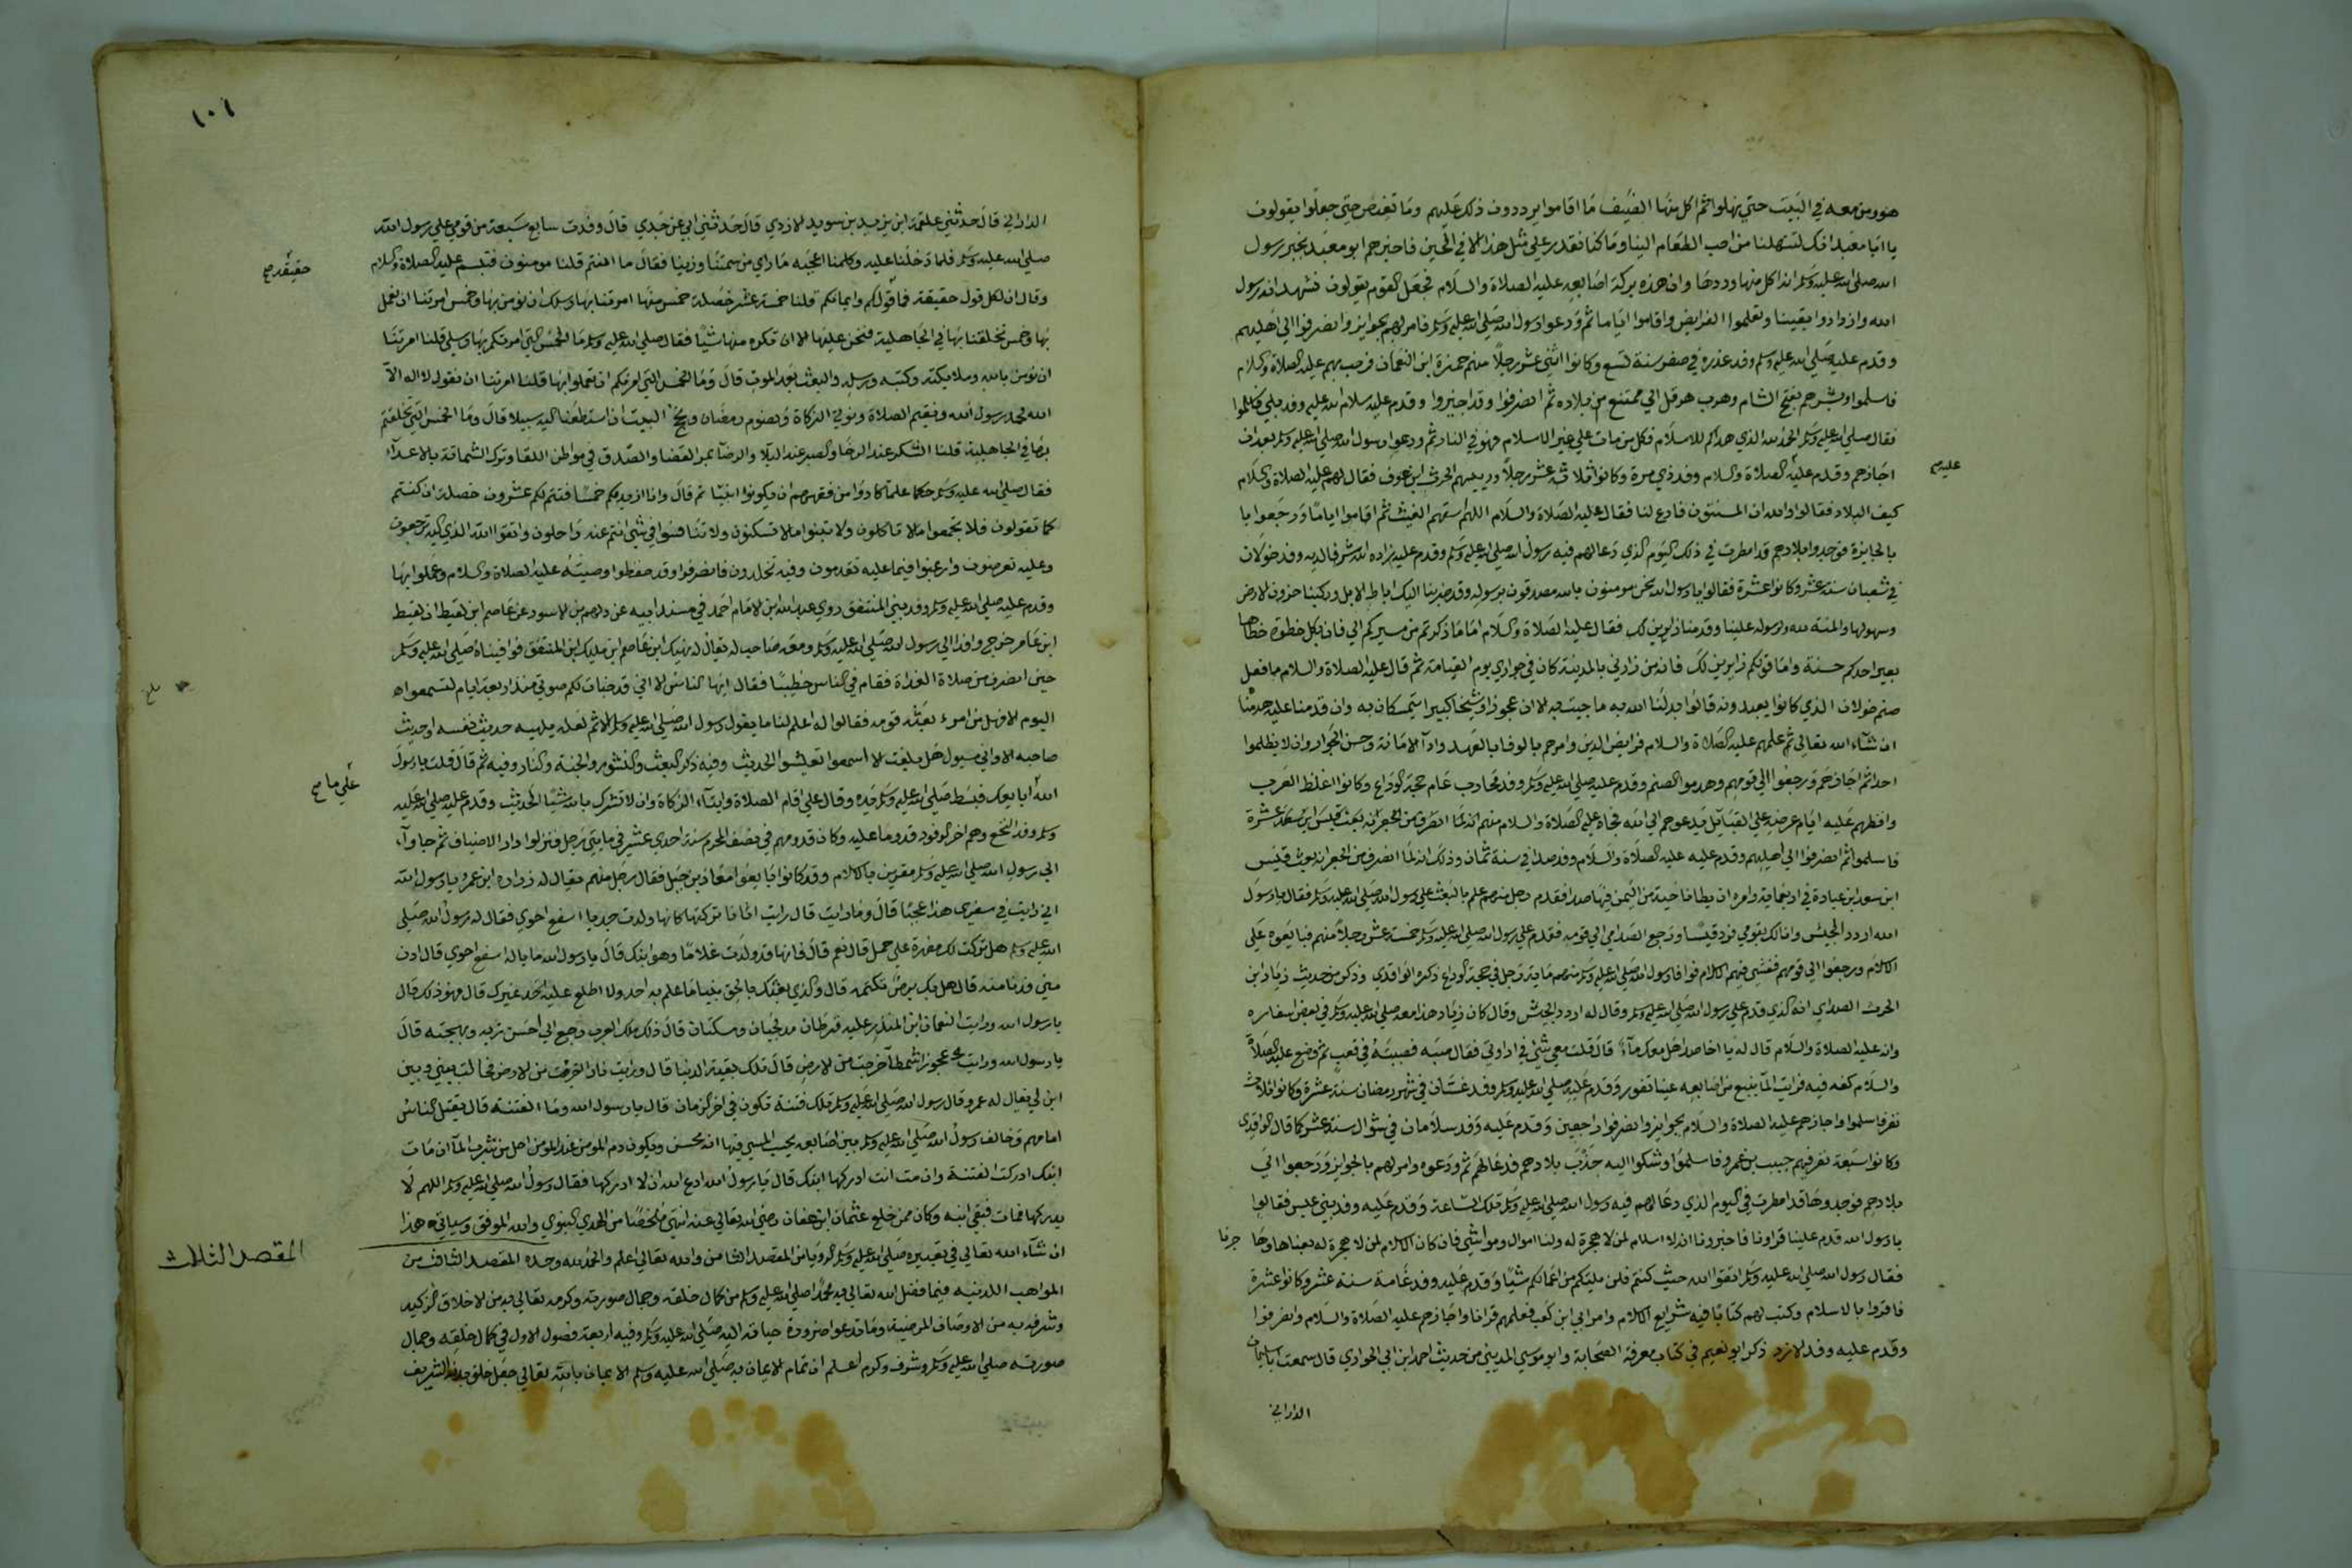 هو ومن معه في البيت حتي نهلوا ثم اكل منها الضيف ما اقاموا يرددون ذلك عليهم وما تغيض حتي جعلوا يقولون
يا ابا معبد انك لتنهلنا من احب الطعام الينا وما كنا نقدر علي مثل هذا الا في الحين فاخبرهم ابو معبد بخبر رسول
الله صلي الله عليه وسلم انه اكل منها وردها وان هذه بركة اصابعه عليه الصلاة والسلام فجعل القوم يقولون نشهد انه رسول
الله وازدادوا يقينا وتعلموا الفرايض واقاموا اياما ثم ودعوا رسول الله صلي الله عليه وسلم فامر لهم بجوايز وانصرفوا الي اهليهم
وقدم عليه صلي الله عليه وسلم وفد عذره في صفر سنة تسع وكانوا اثني عشر رجلا منهم حمزة ابن النعمان فرحب بهم عليه الصلاة والسلام
فاسلموا وبشرهم بفتح الشام وهرب هرقل الي ممتنع من بلاده ثم انصرفوا وقد اجيزوا وقدم عليه سلام الله عليه وفد بلي فاسلموا
فقال صلي الله عليه وسلم الحمد لله الذي هداكم للاسلام فكل من مات علي غير الاسلام فهو في النار ثم ودعوا رسول الله صلي الله عليه وسلم بعد ان
اجازهم وقدم عليه الصلاة والسلام وفد ذي مرة وكانوا ثلاثة عشر رجلا ورييسهم الحرث ابن عوف فقال لهم عليه الصلاة والسلام
عليهم
كيف البلاد فقالوا والله انا لمسنتون فادع لنا فقال عليه الصلاة والسلام اللهم اسقهم الغيث ثم اقاموا اياما ورجعوا با
بالجايزة فوجدوا بلادهم قد امطرت في ذلك اليوم الذي دعا لهم فيه رسول الله صلي الله عليه وسلم وقدم عليه زاده الله شرفا لديه وفد خولان
في شعبان سنة عشر وكانوا عشرة فقالوا يا رسول الله نحن مومنون بالله مصدقون برسوله وقد ضربنا اليك اباط الابل وركبنا حزون الارض
وسهولها والمنة لله ولرسوله علينا وقدمنا زايرين لك فقال عليه الصلاة والسلام اما ما ذكرتم من سيركم الي فان بكل خطوة خطاها
بعير احدكم حسنة واما قولكم زايرين لك فانه من زارني بالمدينة كان في جواري يوم القيامة ثم قال عليه الصلاة والسلام ما فعل
صنم خولان الذي كانوا يعبدونه قالوا بدلنا الله به ما جيت به الا ان عجوزا وشيخا كبيرا يتمسكان به وان قدمنا عليه هدمناه
ان شآء الله تعالي ثم علمهم عليه الصلاة والسلام فرايض الدين وامرهم بالوفا بالعهد وادآ الامانة وحسن الجوار وان لا يظلموا
احدا ثم اجازهم ورجعوا الي قومهم وهدموا الصنم وقدم عليه صلي الله عليه وسلم وفد محارب عام حجة الوداع وكانوا اغلظ العرب
وافظهم عليه ايام عرضه علي القبايل يدعوهم الي الله فجاه عليه الصلاة والسلام منهم
فاسلموا ثم انصرفوا الي اهليهم وقدم عليه عليه الصلاة والسلام وفد صدا في سنة ثمان وذلك انه لما انصرف من الجعرانه بعث قيس
ابن سعد ابن عبادة في اربعماية وامره ان يطا ناحية من اليمن فيها صدا فقدم رجل منهم علم بالبعث علي رسول الله صلي الله عليه وسلم فقال يا رسول
الله اردد الجيش وانا لك بقومي فرد قيسا ورجع الصدامي الي قومه فقدم علي رسول الله صلي الله عليه وسلم خمسة عشر رجلا منهم فبايعوه علي
الاسلام ورجعوا الي قومهم ففشي فيهم الاسلام فوافا رسول الله صلي الله عليه وسلم منهم ماية رجل في حجة الوداع ذكره الواقدي وذكر من حديث زياد ابن
الحرث الصداي انه الذي قدم علي رسول الله صلي الله عليه وسلم وقال له اردد الجيش وقال كان زياد هذا معه صلي الله عليه وسلم في بعض اسفاره
وانه عليه الصلاة والسلام قال له يا اخا صدا هل معك مآء قال قلت معي شي في اداوتي فقال صبه فصببته في قعب ثم وضع عليه الصلاة
والسلام كفه فيه فرايت المآ ينبع من اصابعه عينا تفور وقدم عليه صلي الله عليه وسلم وفد غسان في شهر رمضان سنة عشرة وكانوا ثلاثة
نفر فاسلموا واجازهم عليه الصلاة والسلام بجوايز وانصرفوا راجعين وقدم عليه وفد سلامان في شوال سنة عشر كما قال الواقدي
وكانوا سبعة نفر فيهم حبيب بن عمرو فاسلموا وشكوا اليه جدب بلادهم فدعا لهم ثم ودعوه وامر لهم بالجوايز ورجعوا الي
بلادهم فوجدوها قد امطرت في اليوم الذي دعا لهم فيه رسول الله صلي الله عليه وسلم تلك الساعة وقدم عليه وفد بني عبس فقالوا
يا رسول الله قدم علينا قراونا فاخبرونا انه لا اسلام لمن لا هجرة له ولنا اموال ومواشي فان كان لا اسلام لمن لا هجرة له بعناها وهاجرنا
فقال رسول الله صلي الله عليه وسلم اتقوا الله حيث كنتم فلن يلتكم من اعمالكم شيا وقدم عليه وفد غامد سنة عشر وكانوا عشرة
فاقروا بالاسلام وكتب لهم كتابا فيه شرايع الاسلام وامر ابي ابن كعب فعلمهم قرانا واجازهم عليه الصلاة والسلام وانصرفوا
وقدم عليه وفد الازد ذكر ابو نعيم في كتاب معرفة الصحابة وابو موسي المديني من حديث احمد ابن ابي الحواري قال سمعت ابا سليمان
الداراني
١٠١
الداراني قال حدثني علقمة ابن يزيد بن سويد الازدي قال حدثني ابي عن جدي قال وفدت سابع سبعة من قومي علي رسول الله
صلي الله عليه وسلم فلما دخلنا عليه وكلمنا اعجبه ما راي من سمتنا وزينا فقال ما انتم قلنا مومنون فتبسم عليه الصلاة والسلام
وقال ان لكل قول حقيقة فما قولكم وايمانكم قلنا خمسة عشر خصلة خمس منها امرتنا بها رسلك ان نومن بها وخمس امرتنا ان نعمل
حقيقة صح
بها وخمس تخلقنا بها في الجاهلية فنحن عليها الا ان تكره منها شيا فقال صلي الله عليه وسلم ما الخمس التي امرتكم بها رسلي قلنا امرتنا
ان نومن بالله وملايكته وكتبه ورسله والبعث بعد الموت قال وما الخمس التي امرتكم ان تعملوا بها قلنا امرتنا ان نقول لا اله الا
الله محمد رسول الله ونقيم الصلاة ونوتي الزكاة ونصوم رمضان ونحج البيت ان استطعنا اليه سبيلا قال وما الخمس التي تخلقتم
بها في الجاهلية قلنا الشكر عند الرخا والصبر عند البلا والرضا بمر القضا والصدق في مواطن اللقا وترك الشماتة بالاعدآ
فقال صلي الله عليه وسلم حكما علما كادوا من فقههم ان يكونوا انبيا ثم قال وانا ازيدكم خمسا فتتم لكم عشرون خصلة ان كنتم
كما تقولون فلا تجمعوا ما لا تاكلون ولا تبنوا ما لا تسكنون ولا تنافسوا في شي انتم عنه راحلون واتقوا الله الذي اليه ترجعون
وعليه تعرضون وارغبوا فيما عليه تقدمون وفيه تخلدون فانصرفوا وقد حفظوا وصيته عليه الصلاة والسلام وعملوا بها
وقدم عليه صلي الله عليه وسلم وفد بني المنتفق روي عبد الله ابن الامام احمد في مسند ابيه عن دلهم بن الاسود عن عاصم ابن لقيط ان لقيط
ابن عامر خرج وافدا الي رسول الله صلي الله عليه وسلم ومعه صاحب له يقال له نهيك ابن عاصم ابن مليك ابن المنتفق فوافيناه صلي الله عليه وسلم
حين انصرف من صلاة الغداة فقام في الناس خطيبا فقال ايها الناس الا اني قد خبات لكم صوتي منذ اربعة ايام لتسمعوا
اليوم الا فهل من امرء بعثه قومه فقالوا له اعلم لنا ما يقول رسول الله صلي الله عليه وسلم الا ثم لعله يلهيه حديث نفسه او حديث
صاحبه الا واني مسيول هل بلغت الا اسمعوا تعيشوا الحديث وفيه ذكر البعث والنشور والجنة والنار وفيه ثم قال قلت يا رسول
الله ابايعك فبسط صلي الله عليه وسلم يده وقال علي اقام الصلاة وايتآء الزكاة وان لا تشرك بالله شيا الحديث وقدم عليه صلي الله عليه
علي ما صح
وسلم وفد النخع وهم اخر الوفود قدوما عليه وكان قدومهم في نصف المحرم سنة احدي عشر في مايتي رجل فنزلوا دار الاضياف ثم جاوآ
الي رسول الله صلي الله عليه وسلم مقرين بالاسلام وقد كانوا بايعوا معاذ بن جبل فقال رجل منهم يقال له زراره ابن عمرو يا رسول الله
اني رايت في سفري هذا عجبا قال وما رايت قال رايت اتانا تركتها كانها ولدت جديا اسفع احوي فقال له رسول الله صلي
الله عليه وسلم هل تركت لك مصرة علي حمل قال نعم قال فانها قد ولدت غلاما وهو ابنك قال يا رسول الله ما باله اسفع احوي قال ادن
مني فدنا منه قال هل بك برص تكتمه قال والذي بعثك بالحق نبيا ما علم به احد ولا اطلع عليه احد غيرك قال فهو ذلك قال
يا رسول الله ورايت النعمان ابن المنذر عليه قرطان مدملجان ومسكتان قال ذلك ملك العرب رجع الي احسن زيه وبهجته قال
يا رسول الله ورايت عجوزا شمطا خرجت من الارض قال تلك بقية الدنيا قال ورايت نارا خرجت من الارض فحالت بيني وبين
ابن لي يقال له عمرو قال رسول الله صلي الله عليه وسلم تلك فتنة تكون في اخر الزمان قال يا رسول الله وما الفتنة قال يقتل الناس
امامهم وخالف رسول الله صلي الله عليه وسلم بين اصابعه يحسب المسي فيها انه محسن ويكون دم المومن عند المومن احل من شرب المآ ان مات
ابنك ادركت الفتنة وان مت انت ادركها ابنك قال يا رسول الله ادع الله ان لا ادركها فقال رسول الله صلي الله عليه وسلم اللهم لا
يدركها فمات فبقي ابنه وكان ممن خلع عثمان ابن عفان رضي الله تعالي عنه انتهي ملخصا من الهدي النبوي والله الموفق وسياتي هذا
ان شآء الله تعالي في تعبيره صلي الله عليه وسلم الرويا من المقصد الثامن والله تعالي اعلم والحمد لله وحده المقصد الثالث من
المقصد الثالث
المواهب اللدنيه فيما فضل الله تعالي به محمدا صلي الله عليه وسلم من كمال خلقه وجمال صورته وكرمه تعالي به من الاخلاق الزكيه
وشرفه به من الاوصاف المرضية وما تدعوا ضرورة حياته اليه صلي الله عليه وسلم وفيه اربعة فصول الاول في كمال خلقه وجمال
صورته صلي الله عليه وسلم وشرف وكرم اعلم ان تمام الايمان به صلي الله عليه وسلم الايمان بان الله تعالي جعل خلق بدنه الشريف